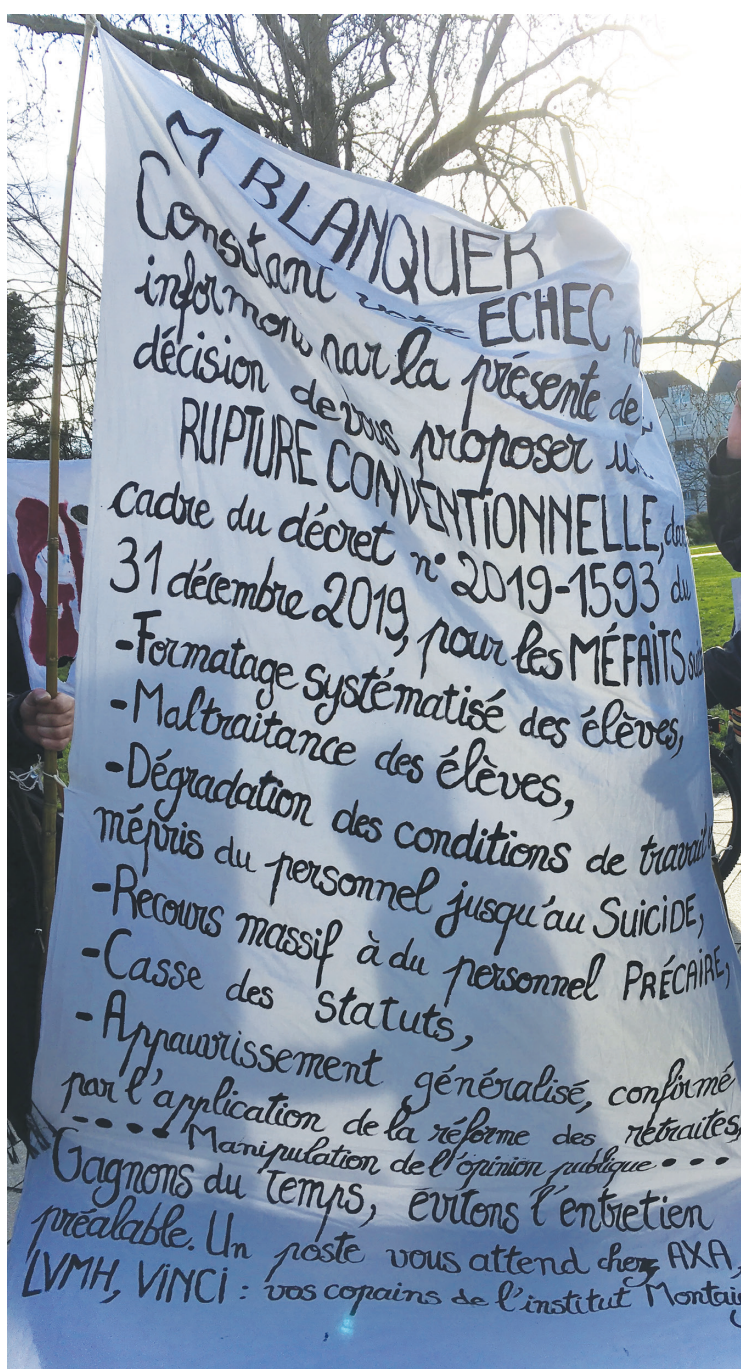 M BLANQUER
Constant votre ECHEC
informons par la présente de
décision de vous proposer
RUPTURE CONVENTIONNELLE,
cadre du décret n° 2019-1593 du
31 décembre 2019, pour les MÉFAITS
-Formatage systématisé des élèves,
-Maltraitance des élèves,
-Dégradation des conditions de travail
mépris du personnel jusqu'au SUiCiDE,
-Recours massif à du personnel PRÉCAIRE,
-Casse des statuts,
-Appauvrissement généralisé, confirmé
par l'application de la réforme des retraites,
•••• Manipulation de l'opinion publique •••
Gagnons du temps, évitons l'entretien
préalable. Un poste vous attend chez AXA,
LVMH, ViNCi : vos copains de l'institut